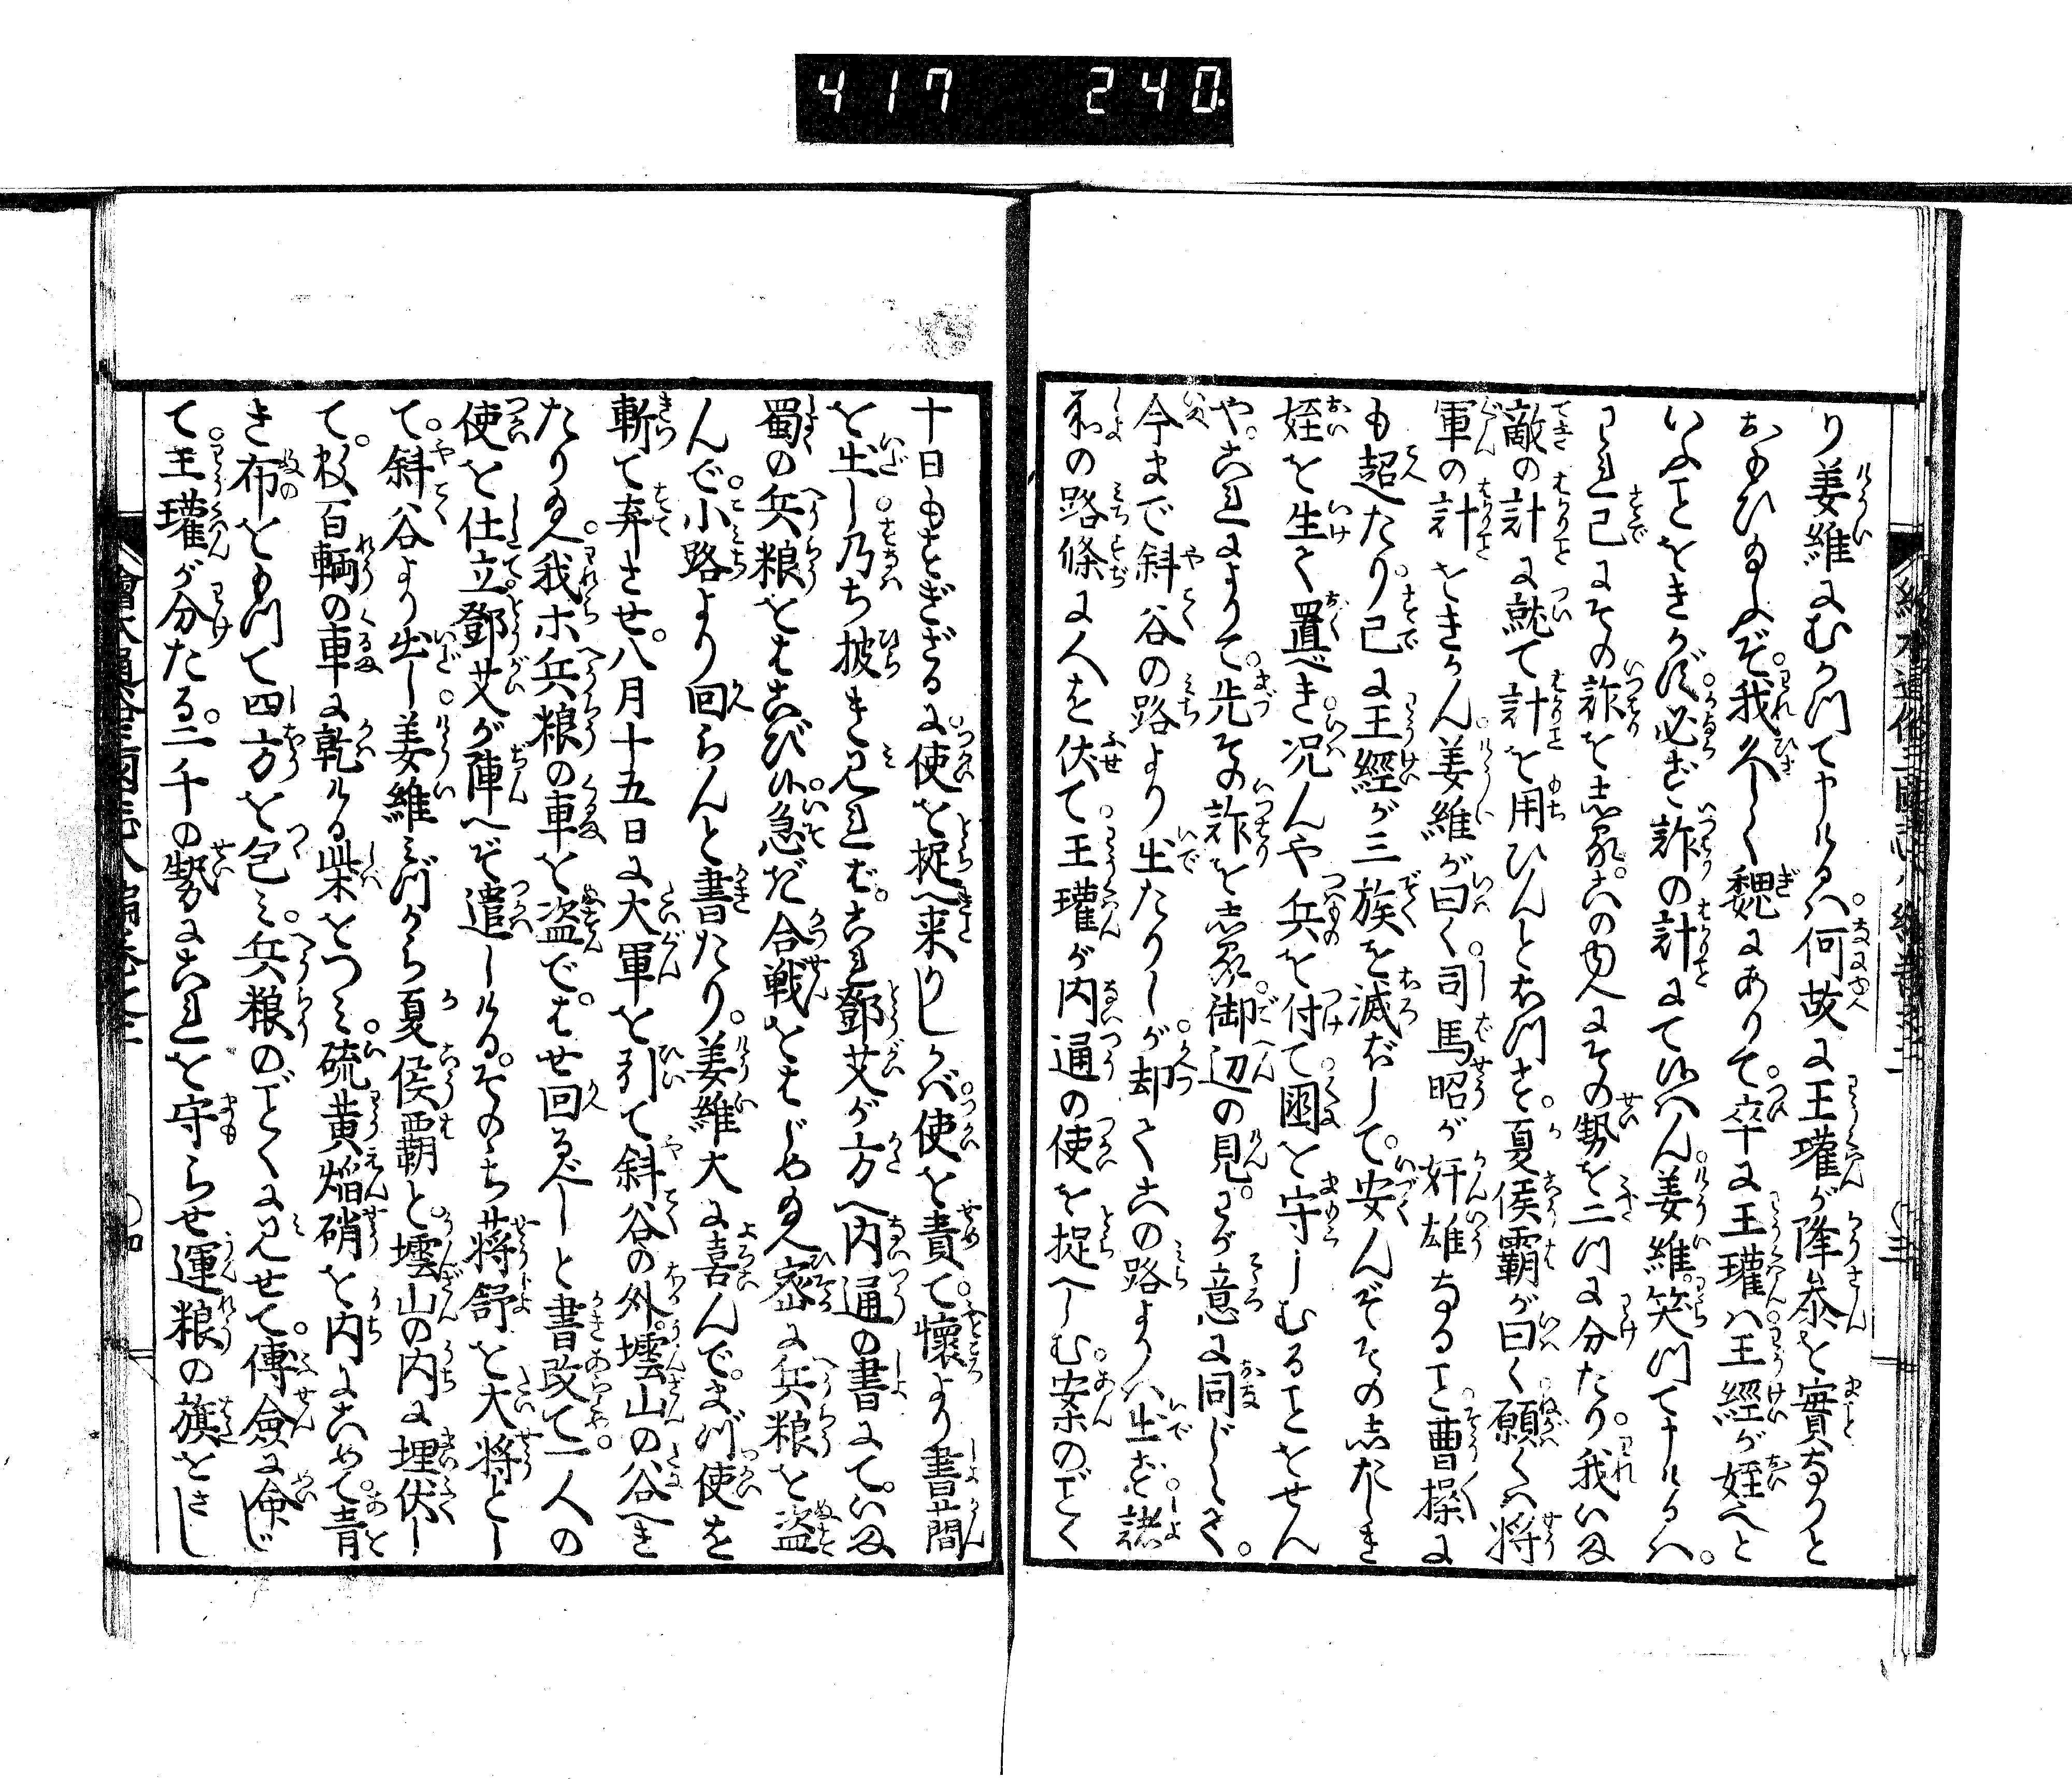 417 240
り姜維にむかつて申けるハ何故に王瓘が降参を實なりと
おもひ給ふぞ我久しく魏にありて卒に王瓘ハ王經が姪と
いふことをきかず必ず詐の計にて候はん姜維笑つて申けるハ
われ已にその詐を志る この故にその勢を二つに分たり我いま
敵の計に就て計を用ひんとおもつ 夏侯覇が曰く願くハ将
軍の計をきかん姜維が曰く司馬昭が奸雄なること曹操に
も超たり已に王經が三族を滅ぼして安んぞその志たしき
姪を生て置べき况んや兵を付て関を守しむることをせん
や これによりて先その詐を志る 御辺の見わが意に同じくして
今まで斜谷の路より出たりしが却てこの路よりハ出ず諸
の路條に人を伏て王瓘が内通の使を捉へしむ案のごとく
十日もすぎざるに使を捉へ来りしかバ使を責て懐より書簡
を出し乃ち披き見れば これ鄧艾が方へ内通の書にていま
蜀の兵粮をはこび候急だ合戦をはじめ給へ密に兵粮を盗
んで小路より回らんと書たり姜維大に喜んでまづ使を
斬て弃させ八月十五日に大軍を引て斜谷の外 壜山の谷へき
たり給へ我ホ兵粮の車を盗で はせ回るべしと書改て一人の
使を仕立鄧艾が陣へぞ遣しける そのゝち蒋舒を大将とし
て斜谷より出し姜維みづから夏侯覇と 壜山の内に埋伏し
て 数百輌の車に乾ける柴をつミ硫黄焔硝を内にこめて青
き布をもつて四方を包ミ兵粮のごとくに見せて傅僉に命じ
て王瓘が分たる二千の勢にこれを守らせ運粮の旗をさし